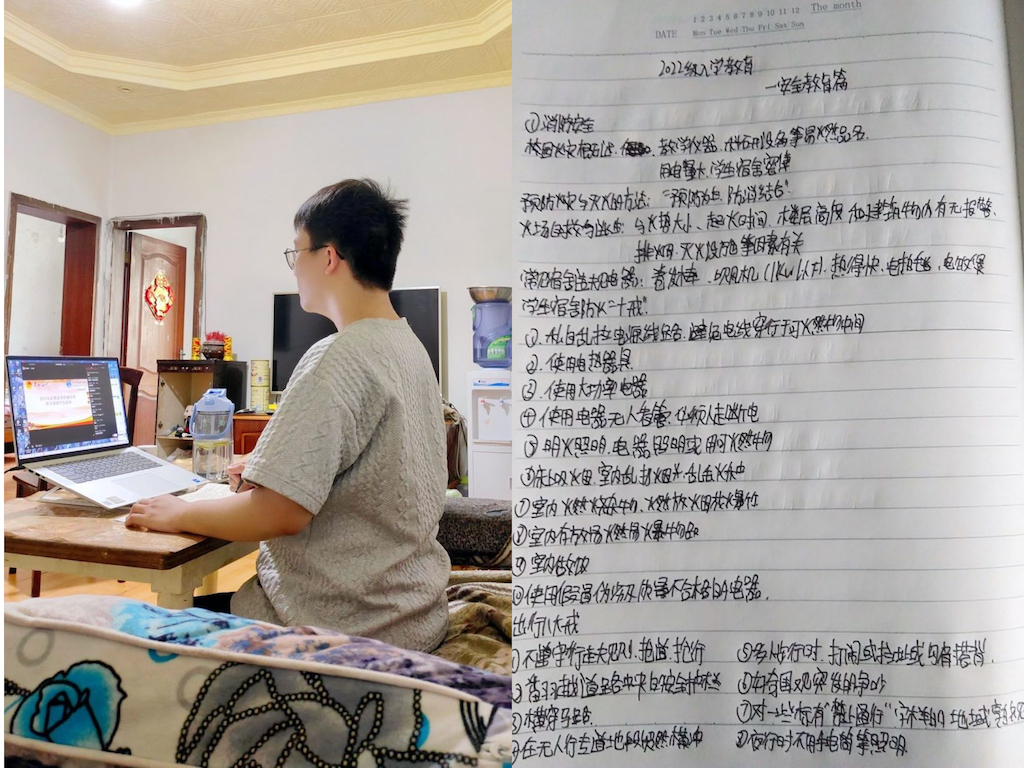 1 2 3 4 5 6 7 8 9 10 11 12 The month
DATE Mon Tue Wed Thu Fri Sat Sun
2022级入学教育
—安全教育篇
①消防安全
校园火灾 教学仪器、 设备等易燃品多.
用电量大,学生宿舍密集
预防火灾与灭火的方法:“预防为主,防消结合”.
火势大小、起火时间、楼层高度和建筑物内有无报警、
排烟、灭火设施等因素有关
常见宿舍 电器: 吹风机(1kw以下),热得快、 电饭煲
学生宿舍防火“十戒”
①、私自乱拉电源线路,避免电线穿行于可燃物中间
②、使用电热器具
③、使用大功率电器
④使用电器无人看管,必须人走断电
⑤明火照明,电器照明或用可燃物
⑥床上吸烟,室内乱扔烟头、乱丢火种
⑦室内燃烧杂物、燃放烟花爆竹
⑧室内存放易燃易爆物品
⑨室内做饭
⑩使用假冒伪劣及质量不合格的电器.
出行八大戒
①不遵守行走规则,抢道,抢行
②翻越道路中央的安全护栏
③横穿马路
④在无人行走道地段 横冲
⑤多人出行时,打闹或 或勾肩搭背.
⑥ 围观 争吵
⑦对一些标有“禁止通行” 的地域
⑧夜行时不用手电筒等照明